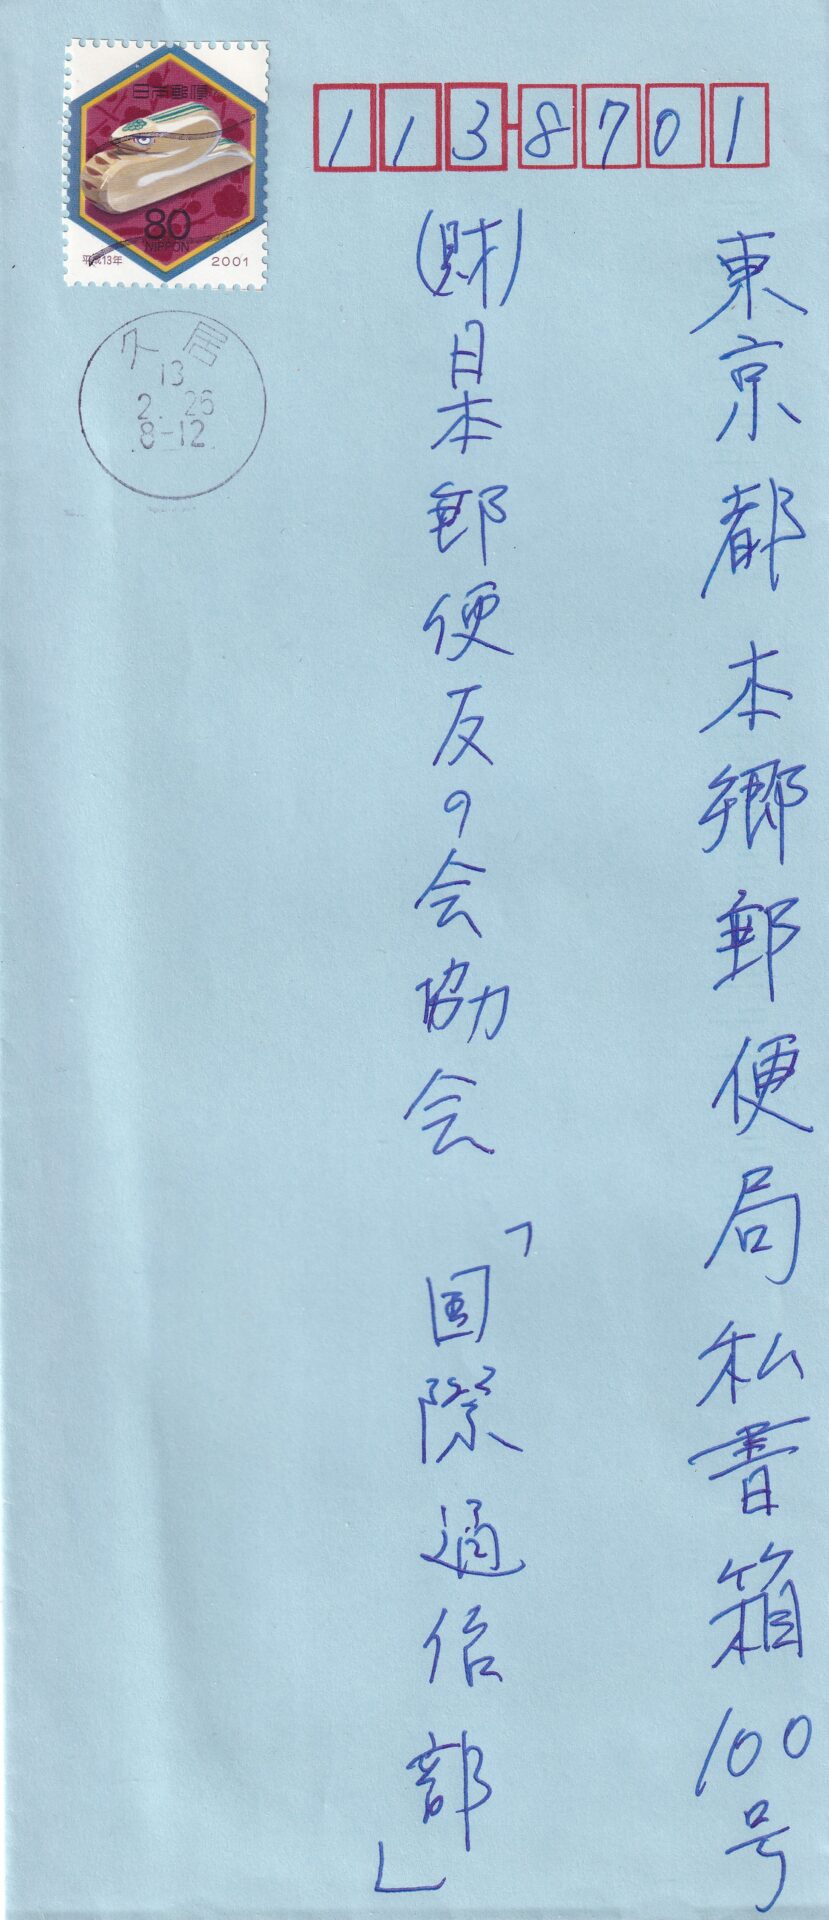 日本郵便
80
NIPPON
平成13年 2001
久居
13
2. 26
8-12
113-8701
東京都本郷郵便局私書箱100号
(財)日本郵便友の会協会「国際通信部」